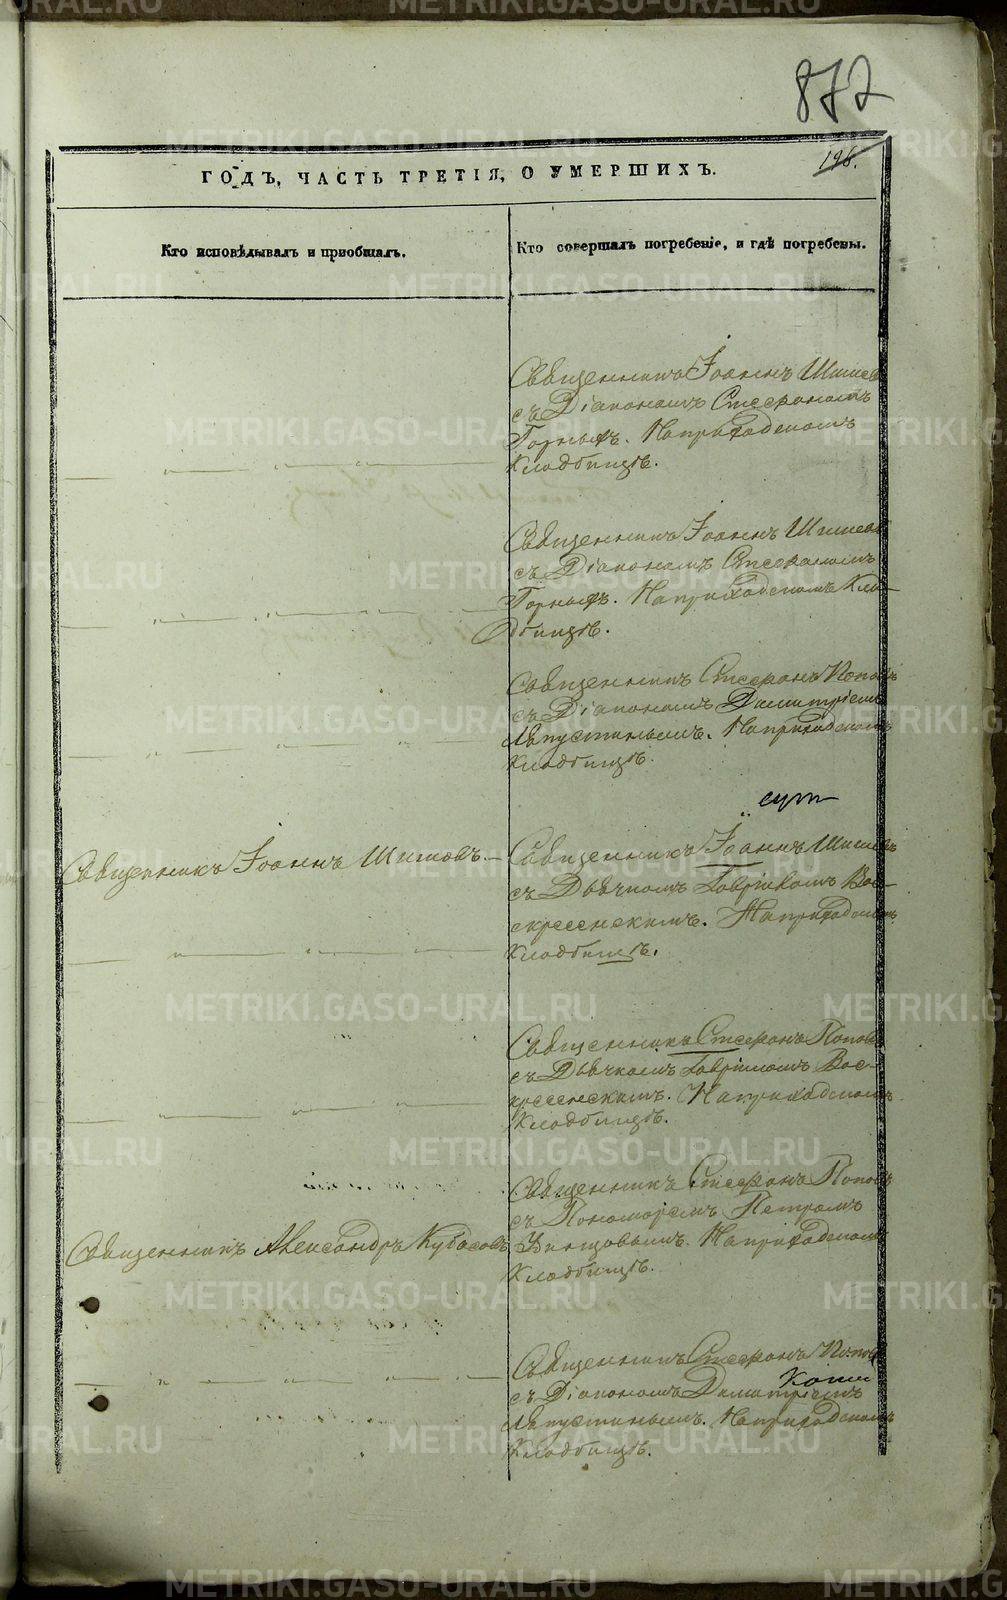 872
196.
ГОДЪ, ЧАСТЬ ТРЕТІЯ, О УМЕРШИХЪ.
Кто исповѣдывалъ и пріобщалъ.
Кто совершалъ погребеніе, и гдѣ погребены.
Священникъ Іоаннъ Шишевъ
съ Діакономъ Стефаномъ
Горныхъ. На приходскомъ
Кладбищѣ.
Священникъ Іоаннъ Шишевъ
съ Діакономъ Стефаномъ
Горныхъ. На приходскомъ Кла-
дбищѣ.
Священникъ Стефанъ Поповъ
съ Діакономъ Димитріемъ
Авпустиньимъ. На приходскомъ
Кладбищѣ.
Священникъ Іоаннъ Шишовъ.
Священникъ Іоаннъ Шишевъ
съ Дьячкомъ Гавріиломъ Вос-
кресенскимъ. На приходскомъ
Кладбищѣ.
Священникъ Стефанъ Поповъ
съ Дьячкомъ Гавріиломъ Вос-
кресенскимъ. На приходскомъ
Кладбищѣ.
Священникъ Александръ Кубасовъ
Священникъ Стефанъ Поповъ
съ Пономаремъ Петромъ
На приходскомъ
Кладбищѣ.
Священникъ Стефанъ Поповъ
съ Діакономъ Димитріемъ
Авпустиньимъ. На приходскомъ
Кладбищѣ.
METRIKI.GASO-URAL.RU